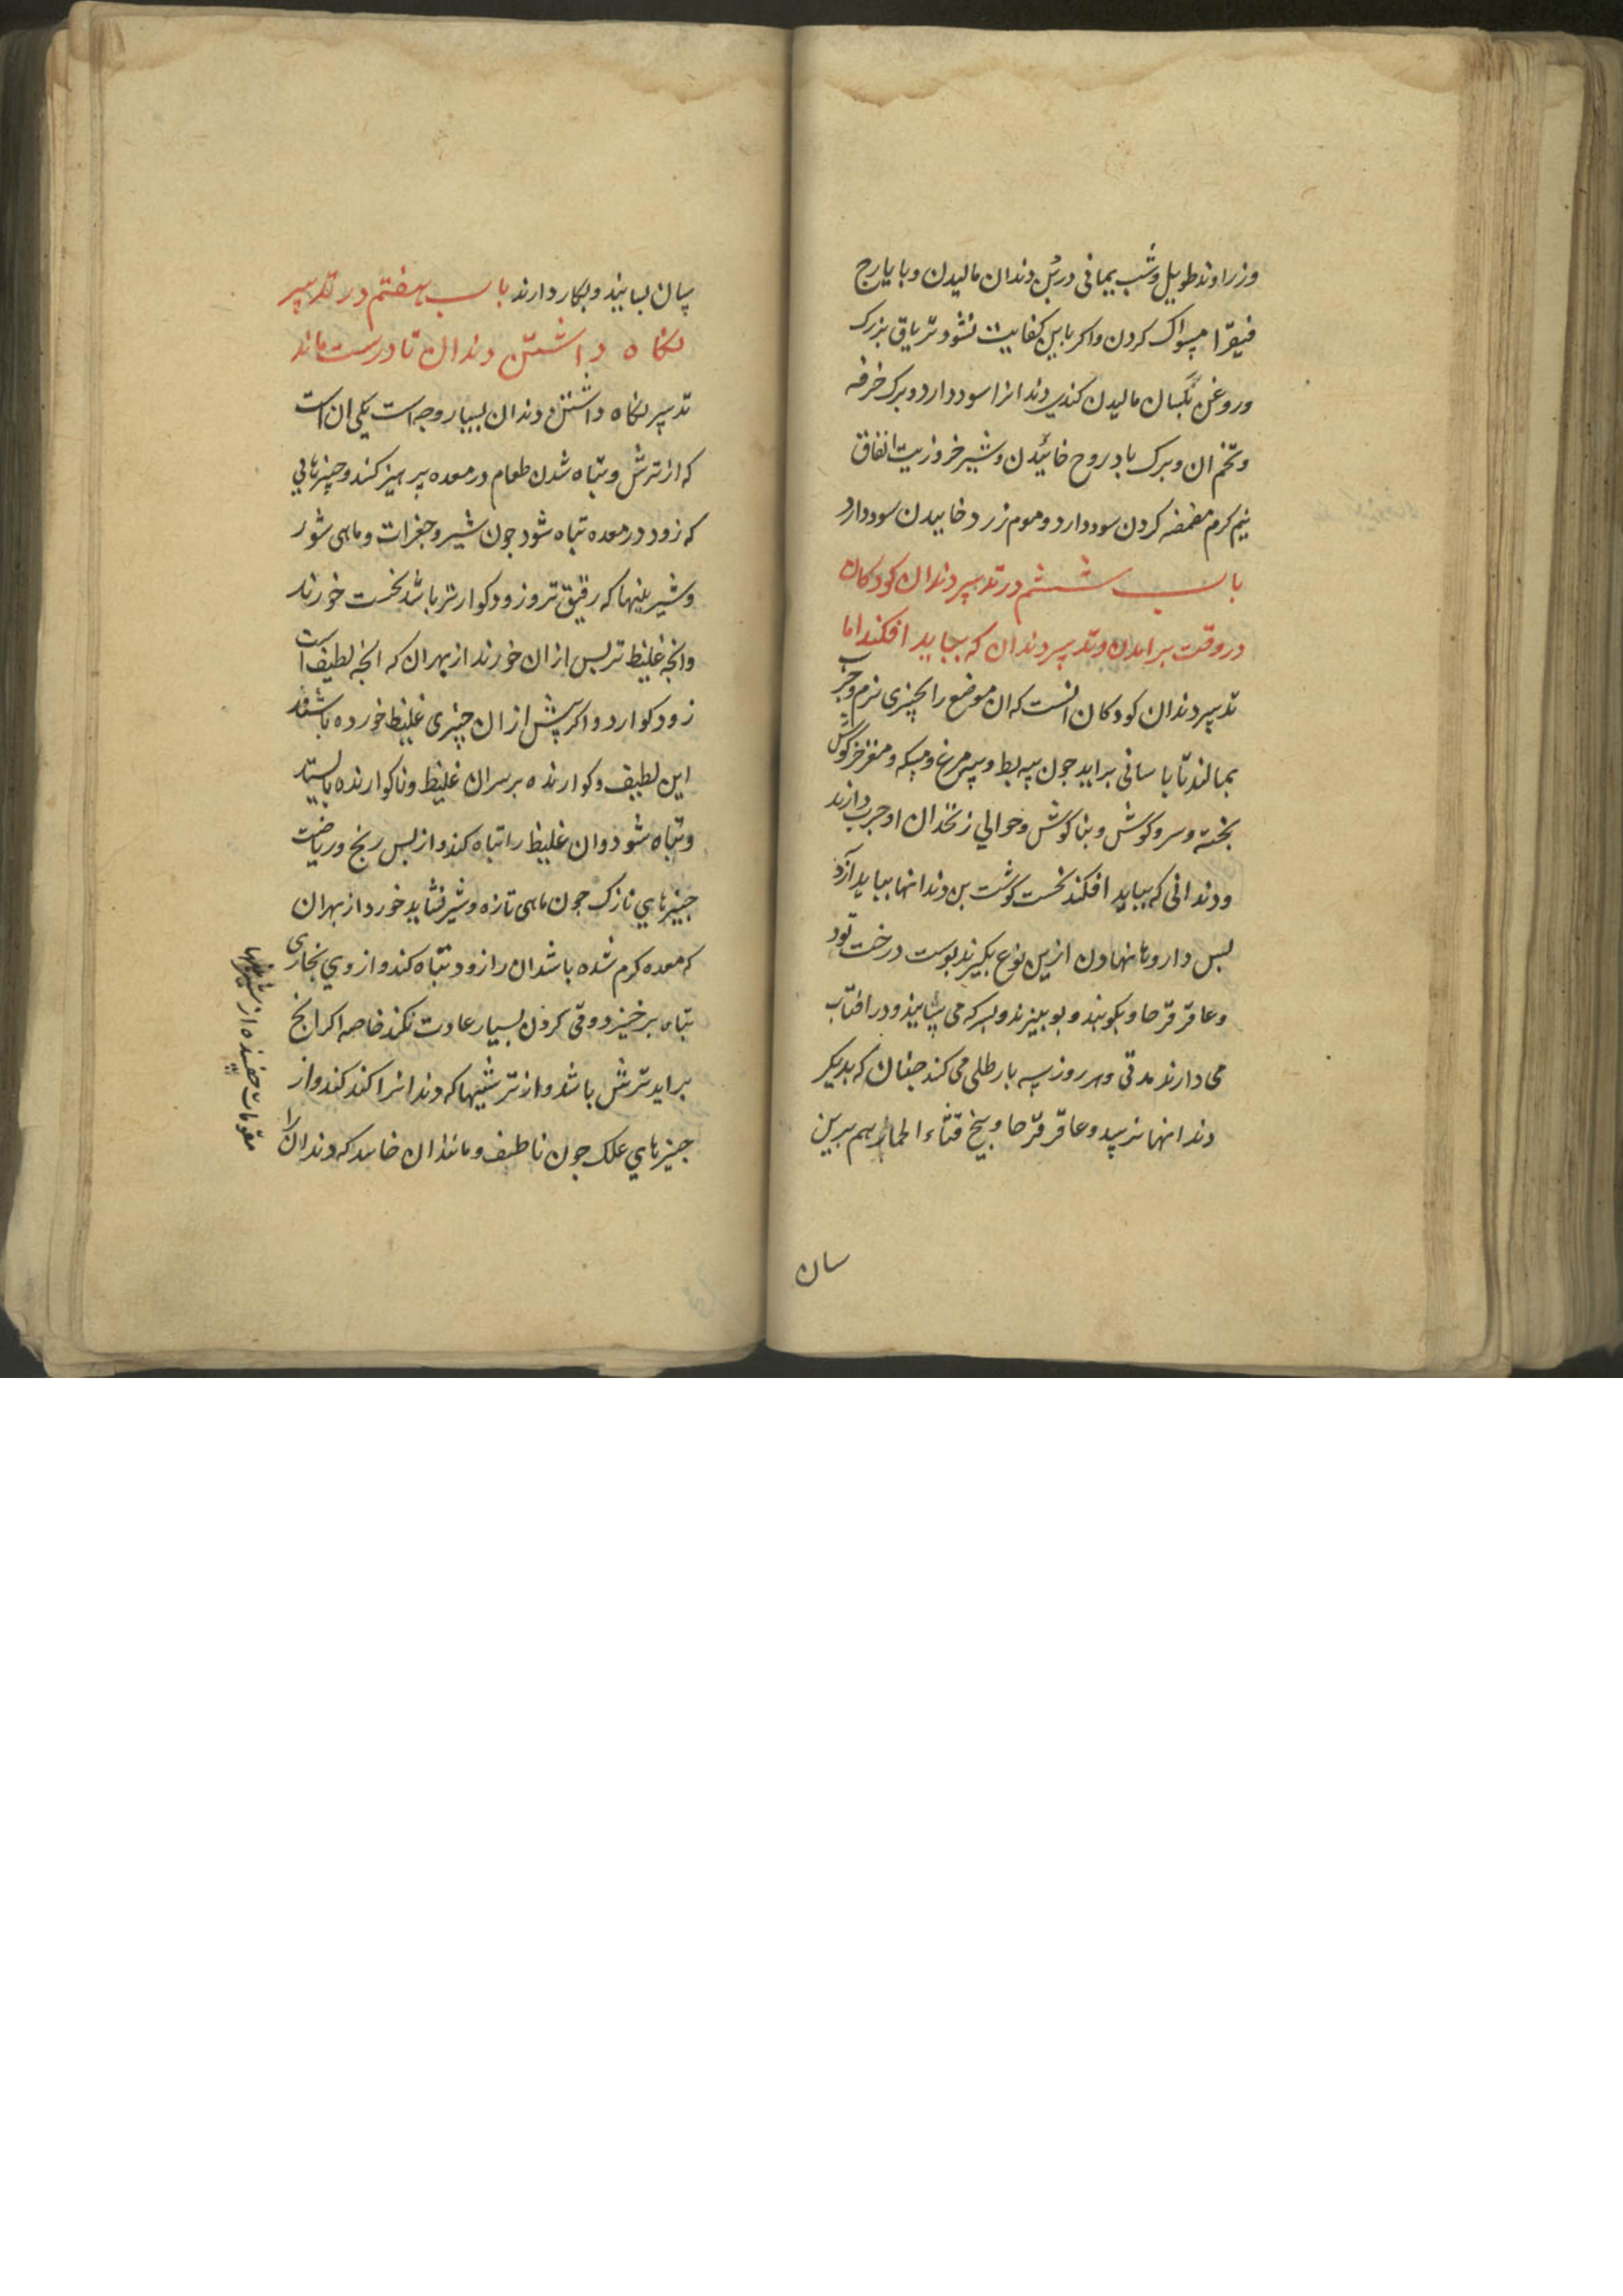 وزراوند طویل وشب یمانی در بُن دندان مالیدن وبا یارج
فیقرا مسواک کردن واکر باین کفایت نشود تریاق بزرک
وروغن بلسان مالیدن کندی دندانرا سود دارد وبرک خرفه
وتخم ان وبرک بادروح خائیدن وشیر خر وزیت انفاق
نیم کرم مضمضه کردن سود دارد وموم زرد خاییدن سود دارد
باب ششم در تدبیر دندان کودکان
در وقت برامدن وتدبیر دندان که بباید افکند اما
تدبیر دندان کودکان انست که ان موضع را بچیزی نرم وچرب
بمالند تا باسانی براید جون پیه بط وپیه مرغ ومسکه ومغز خرکوش
پخته وسر وکوش وبناکوش وحوالی زنخدان او چرب دارند
ودندانی که بباید افکند نخست کوشت بن دندانها بباید آزرد
پس داروها نهادن ازین نوع بکیرند پوست درخت تود
وعاقرقرحا وبکوبند وببیزند وبسرکه می سایند ودر افتاب
می دارند مدتی وهر روز سه بار طلی می کنند چنان که بدیکر
دندانها نرسد وعاقرقرحا وبیخ قثاء الحمار هم برین
سان
سان بسایند وبکار دارند باب هفتم در تدبیر
نکاه داشتن دندان تا درست ماند
تدبیر نکاه داشتن دندان بسیار وجه است یکی ان است
که از ترش وتباه شدن طعام در معده پرهیز کند وچیزهایی
که زود در معده تباه شود جون شیر وجغرات وماهی شور
وشیرینیها که رقیق تر وزود کوارتر باشد نخست خورند
وانچه غلیظ تر پس ازان خورند از بهر ان که انچه لطیف است
زود کوارد واکر پیش از ان چیزی غلیظ خورده باشند
این لطیف وکوارنده بر سر ان غلیظ وناکوارنده بایستد
وتباه شود وان غلیظ را تباه کند واز پس رنج وریاضت
چیزهای نازک جون ماهی تازه وشیر نشاید خورد از بهر ان
که معده کرم شده باشد ان را زود تباه کند واز وی بخاری
تباه برخیزد وقی کردن بسیار عادت نکند خاصه اکر انچ
براید ترش باشد واز ترشیها که دندانرا کند کند واز
چیزهای علک جون ناطف ومانند ان خاید که دندان را
مقویات چفسنده از شیرینیها